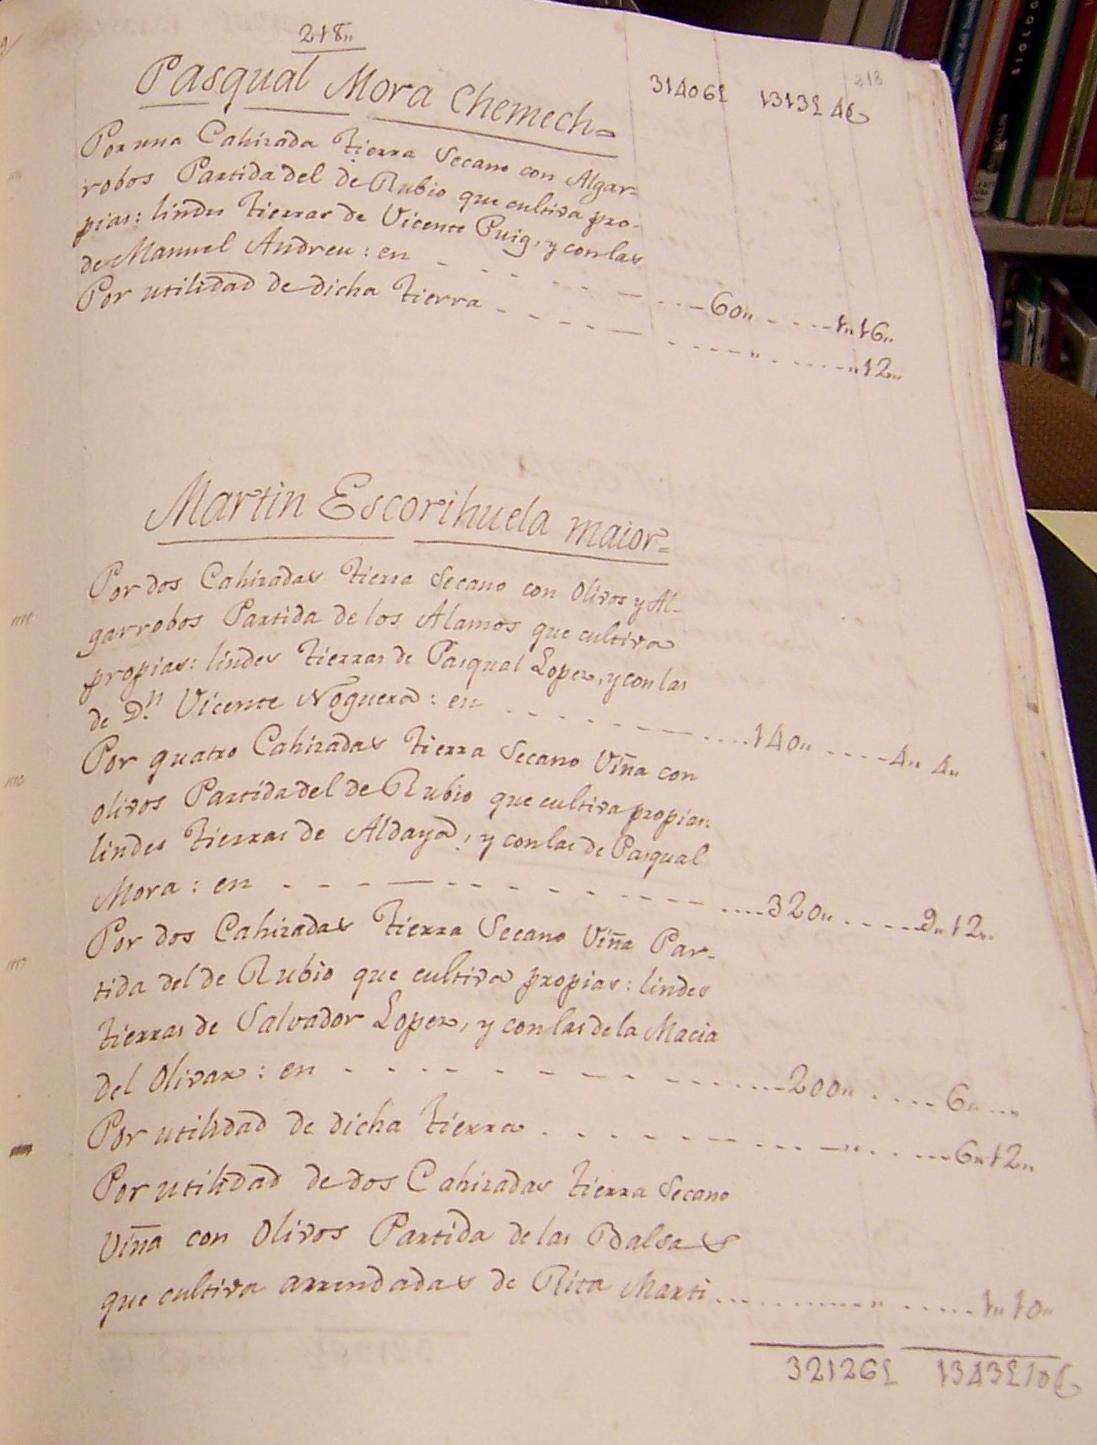 218„
218
Pasqual Mora Chemech= 31406£ 1313£ 4
Por una Cahizada tierra Secano con Algar-
robos Partida del de Rubio que cultiva pro-
pias: lindes tierras de Vicente Puig, y con las
de Manuel Andreu: en 60„ 1„16„
Por utilidad de dicha tierra „ „12„
Martin Escorihuela maior=
Por dos Cahizadas tierra Secano con Olivos y Al-
garrobos Partida de los Alamos que cultiva
propias: lindes tierras de Pasqual Lopez, y con las
de Dn. Vicente Noguera: en 140„ 4„ 4„
Por quatro Cahizadas tierra Secano Viña con
olivos Partida del de Rubio que cultiva propias:
lindes tierras de Aldaya, y con las de Pasqual
Mora: en 320„ 9„12„
Por dos Cahizadas tierra Secano Viña Par-
tida del de Rubio que cultiva propias: lindes
tierras de Salvador Lopez, y con las de la Macia
del Olivar: en 200„ 6„ „
Por utilidad de dicha tierra „ 6„12„
Por utilidad de dos Cahizadas tierra Secano
Viña con Olivos Partida de las Balsas
que cultiva arrendadas de Rita Marti „ 1„10„
32126£ 1343£10